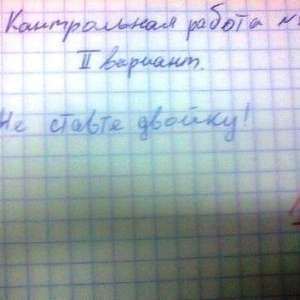 Контрольная работа №
II вариант.
Не ставте двойку!